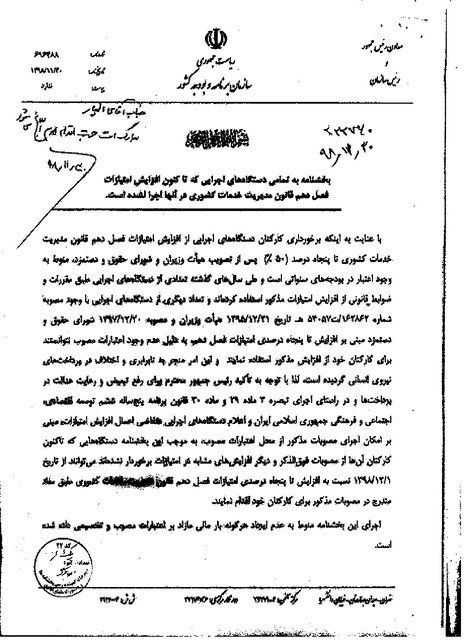 ریاست جمهوری
سازمان برنامه و بودجه کشور
معاون رئیس جمهور
و
رئیس سازمان
۶۹۶۳۸۸
۱۳۹۸/۱۱/۳۰
ندارد
بخشنامه به تمامی دستگاه‌های اجرایی که تا کنون افزایش امتیازات
فصل دهم قانون مدیریت خدمات کشوری در آنها اجرا نشده است.
با عنایت به اینکه برخورداری کارکنان دستگاه‌های اجرایی از افزایش امتیازات فصل دهم قانون مدیریت
خدمات کشوری تا پنجاه درصد (۵۰ ٪) پس از تصویب هیأت وزیران و شورای حقوق و دستمزد، منوط به
وجود اعتبار در بودجه‌های سنواتی است و طی سال‌های گذشته تعدادی از دستگاه‌های اجرایی طبق مقررات و
ضوابط قانونی از افزایش امتیازات مذکور استفاده کرده‌اند و تعداد دیگری از دستگاه‌های اجرایی با وجود مصوبه
شماره ۱۶۲۸۶۲/ت۵۴۰۵۷ هـ تاریخ ۱۳۹۵/۱۲/۲۱ هیأت وزیران و مصوبه ۱۳۹۷/۱۲/۲۰ شورای حقوق و
دستمزد مبنی بر افزایش تا پنجاه درصدی امتیازات فصل دهم به دلیل عدم وجود اعتبارات مصوب نتوانستند
برای کارکنان خود از افزایش مذکور استفاده نمایند و این امر منجر به نابرابری و اختلاف در پرداخت‌های
نیروی انسانی گردیده است، لذا با توجه به تأکید رئیس جمهور محترم برای رفع تبعیض و رعایت عدالت در
پرداخت‌ها و در راستای اجرای تبصره ۳ ماده ۲۹ و ماده ۳۰ قانون برنامه پنج‌ساله ششم توسعه اقتصادی،
اجتماعی و فرهنگی جمهوری اسلامی ایران و اعلام دستگاه‌های اجرایی متقاضی اعمال افزایش امتیازات مبنی
بر امکان اجرای مصوبات مذکور از محل اعتبارات مصوب، به موجب این بخشنامه دستگاه‌هایی که تاکنون
کارکنان آن‌ها از مصوبات فوق‌الذکر و دیگر افزایش‌های مشابه هر امتیازات برخوردار نشده‌اند می‌توانند از تاریخ
۱۳۹۸/۱۲/۱ نسبت به افزایش تا پنجاه درصدی امتیازات فصل دهم قانون کشوری طبق مفاد
مندرج در مصوبات مذکور برای کارکنان خود اقدام نمایند.
اجرای این بخشنامه منوط به عدم ایجاد هرگونه بار مالی مازاد بر اعتبارات مصوب و تخصیصی داده شده
است.